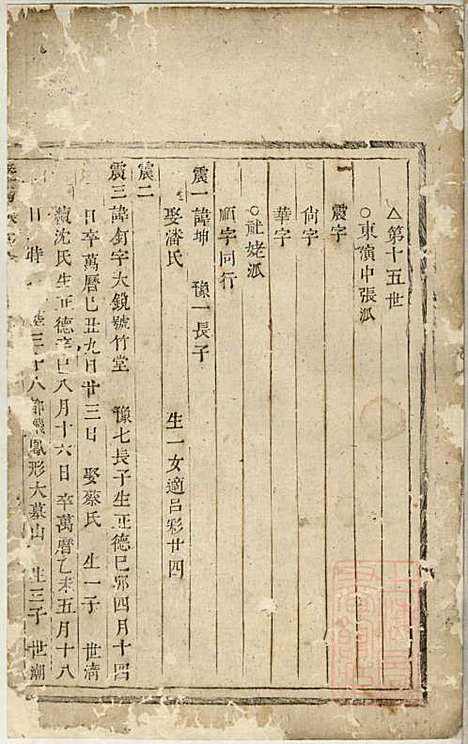 △第十五世
○東演中張派
震字
尙字
華字
○社姥派
順字同行
震一 諱坤 豫一長子
娶潘氏 生一女適呂彩廿四
震二
震三 諱釘字大鏡號竹堂 豫七長子生正德己卯四月十四
日卒萬曆己丑九月廿三日 娶蔡氏 生一子 世清
沈氏生正德辛巳八月十六日卒萬曆乙未五月十八
日時 三十八都 鳳形大墓山 生三子 世潮